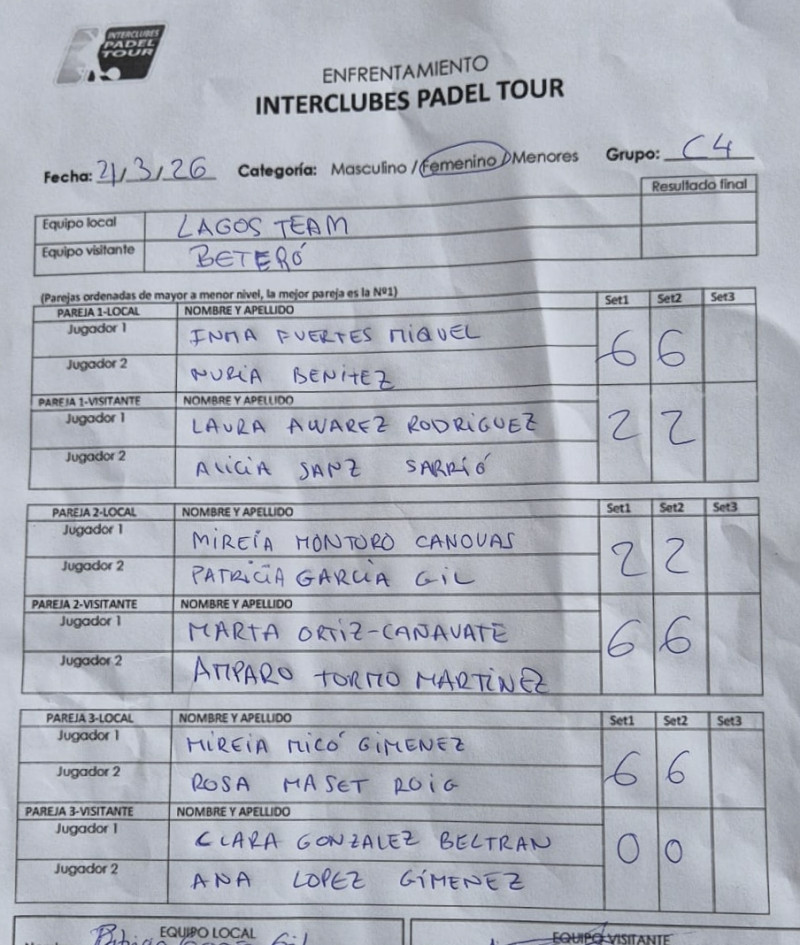 INTERCLUBES
PADEL
TOUR
ENFRENTAMIENTO
INTERCLUBES PADEL TOUR
Fecha: 21/3/26 Categoría: Masculino / Femenino / Menores Grupo: C4
Resultado final
Equipo local LAGOS TEAM
Equipo visitante BETERÓ
(Parejas ordenadas de mayor a menor nivel, la mejor pareja es la Nº1)
PAREJA 1-LOCAL NOMBRE Y APELLIDO Set1 Set2 Set3
Jugador 1 INMA FUERTES MIQUEL
6 6
Jugador 2 NURIA BENITEZ
PAREJA 1-VISITANTE NOMBRE Y APELLIDO
Jugador 1 LAURA ALVAREZ RODRIGUEZ
2 2
Jugador 2 ALICIA SANZ SARRIÓ
PAREJA 2-LOCAL NOMBRE Y APELLIDO Set1 Set2 Set3
Jugador 1 MIREIA MONTORO CANOVAS
2 2
Jugador 2 PATRICIA GARCIA GIL
PAREJA 2-VISITANTE NOMBRE Y APELLIDO
Jugador 1 MARTA ORTIZ-CAÑAVATE
6 6
Jugador 2 AMPARO TORMO MARTINEZ
PAREJA 3-LOCAL NOMBRE Y APELLIDO Set1 Set2 Set3
Jugador 1 MIREIA MICÓ GIMENEZ
6 6
Jugador 2 ROSA MASET ROIG
PAREJA 3-VISITANTE NOMBRE Y APELLIDO
Jugador 1 CLARA GONZALEZ BELTRAN
0 0
Jugador 2 ANA LOPEZ GIMENEZ
EQUIPO LOCAL EQUIPO VISITANTE